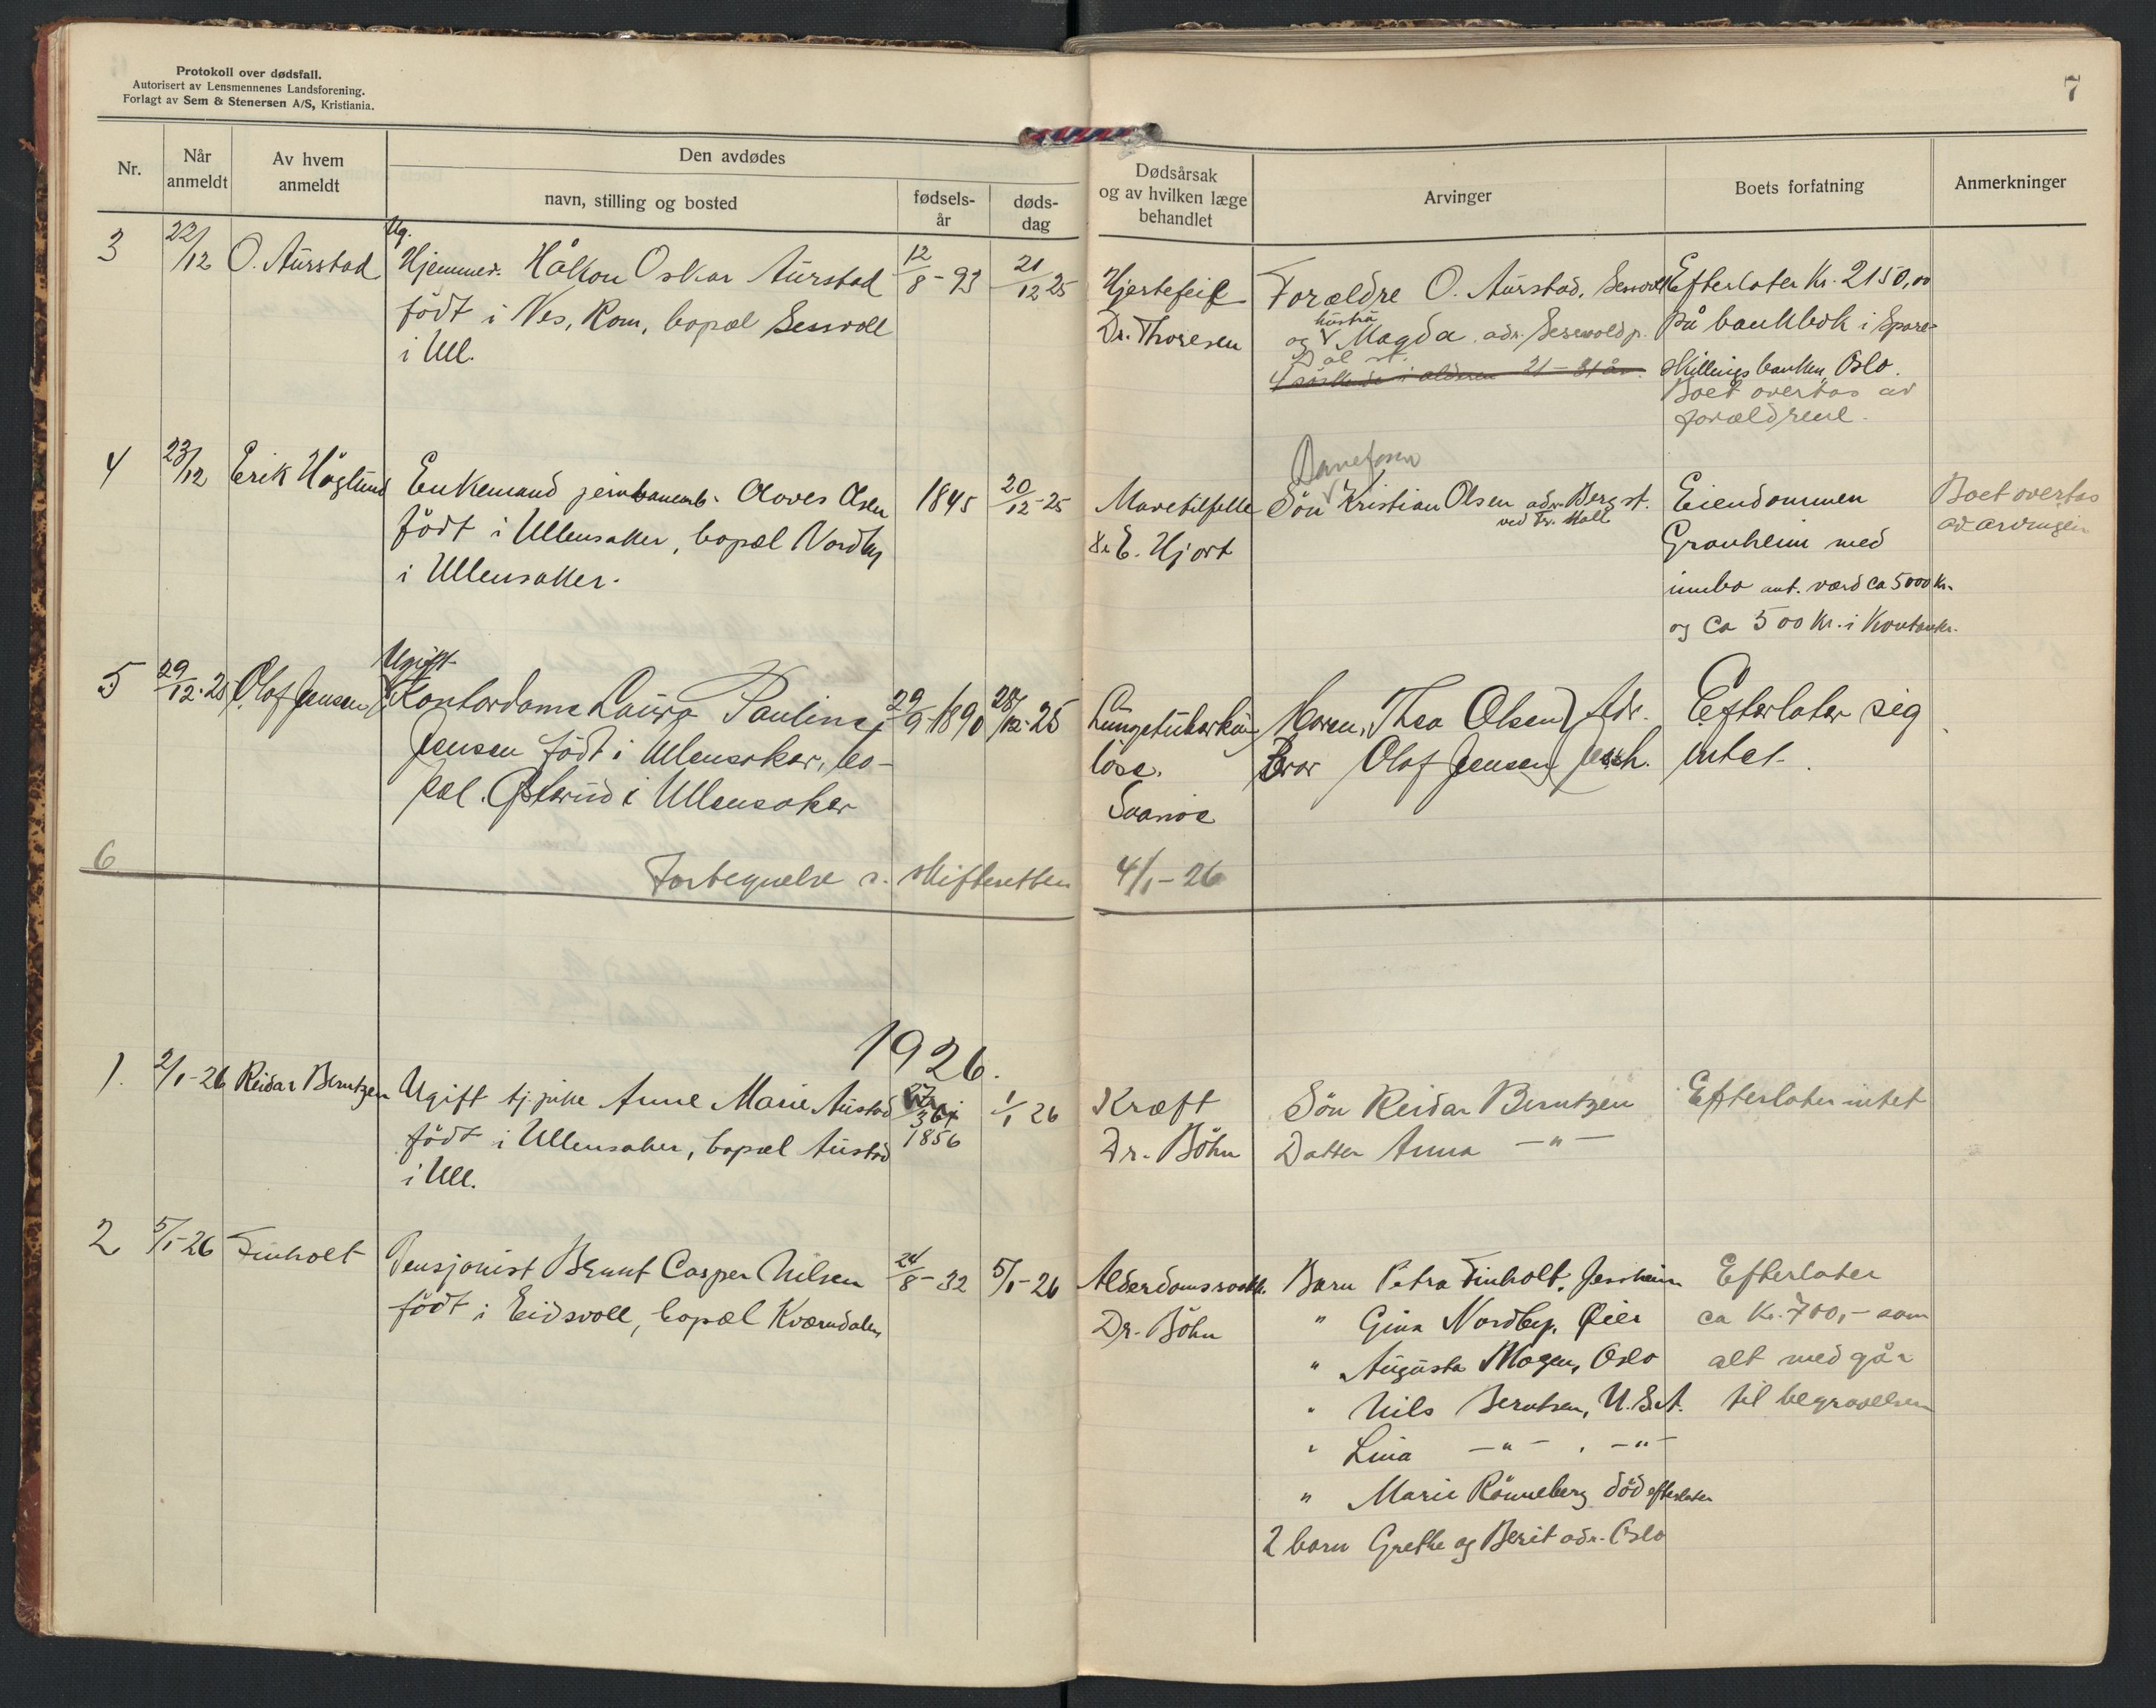 Protokoll over dødsfall.
Autorisert av Lensmennenes Landsforening.
Forlagt av Sem & Stenersen A/S, Kristiania.
7
Nr.
Når anmeldt
Av hvem anmeldt
Den avdødes
navn, stilling og bosted
fødsels-år
døds-dag
Dødsårsak og av hvilken læge behandlet
Arvinger
Boets forfatning
Anmerkninger
3
22/12
O. Aurstad
Ug.
Hjemmev. Håkon Oskar Aurstad
født i Ves, Rom, bopæl Sessvoll
i Ull.
12/8-93
21/12 25
Hjertefeil
Dr. Thoresen
Forældre O. Aurstad, Sessvoll
hustru
og Magda adr. Sessvold p.
Dal st.
4 søskende i alderen 21-31 år.
Efterlater Kr. 2150,00
på bankbok i Spare-
skillingsbanken, Oslo.
Boet overtas av
forældrene.
4
23/12
Erik Høglund
Enkemand jernbanearb. Oloves Olsen
født i Ullensaker, bopæl Nordby
i Ullensaker.
1845
20/12-25
Mavetilfelle
Dr E. Hjort
Danefosen
Søn Kristian Olsen adr. Berg st.
ved Fr. Hall
Eiendommen
Granheim med
innbo ant. værd ca 5000 Kr.
og ca 500 Kr. i Kontanter.
Boet overtas
av arvingen
5
29/12-25
Olaf Jensen
Ugift
Kontordame Laura Pauline
Jensen født i Ullensaker, bo-
pæl. Østerud i Ullensaker
29/9-1890
28/12-25
Lungetuberku
löse.
Svanöe
Moren, Thea Olsen) Adr.
Bror Olaf Jensen) Jessh.
Efterlater sig
intet.
6
Fortegnelse s. skifteretten 4/1-26
1926.
1.
2/1-26
Reidar Berntzen
Ugift tj.pike Anne Marie Austad
født i Ullensaker, bopæl Austad
i Ull.
1856
1/1 26
Kræft
Dr. Bøhn
Søn Reidar Berntzen
Datter Anna -"-
Efterlater intet
2
5/1-26
Finholt
Pensjonist Bernt Casper Nilsen
født i Eidsvoll, bopæl Kværndalen
24/8-32
5/1-26
Alderdomssvakh.
Dr. Bøhn
Barn Petra Finholt, Jessheim
" Gina Nordby, Øier
" Augusta Mogen, Oslo
" Nils Berntsen, U.S.A.
" Lina -"- , -"-
" Marie Rønneberg død efterlater
2 barn Grethe og Berit adr. Oslo
Efterlater
ca Kr. 700,- som
alt medgår
til begravelsen